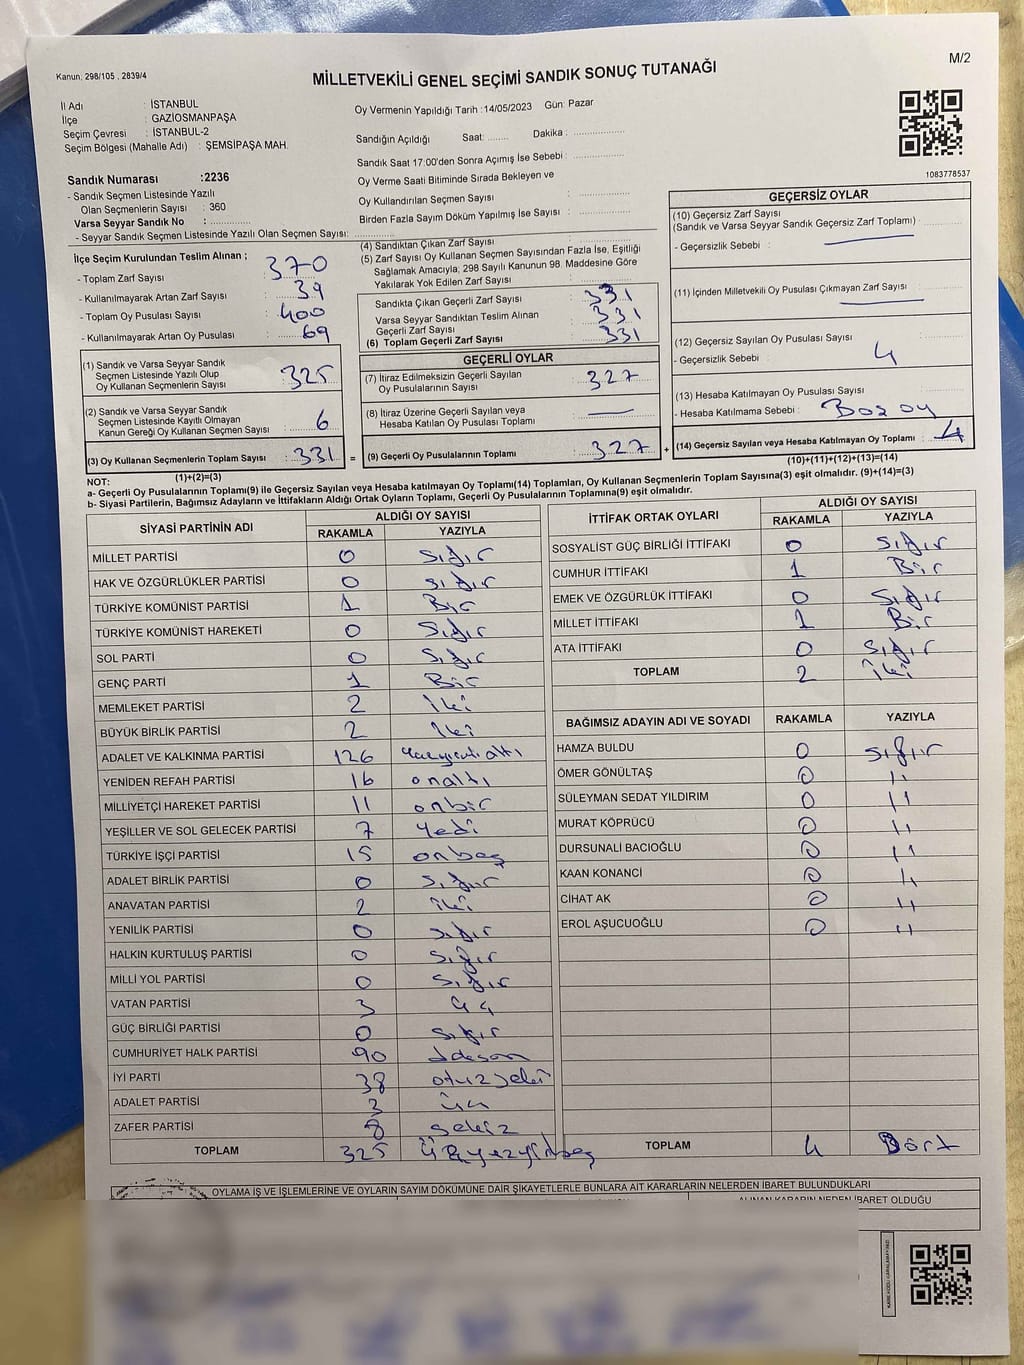 M/2
Kanun, 298/105 , 2839/4
MİLLETVEKİLİ GENEL SEÇİMİ SANDIK SONUÇ TUTANAĞI
İl Adı : İSTANBUL
İlçe : GAZİOSMANPAŞA
Seçim Çevresi : İSTANBUL-2
Seçim Bölgesi (Mahalle Adı) : ŞEMSİPAŞA MAH.
Sandık Numarası :2236
- Sandık Seçmen Listesinde Yazılı
Olan Seçmenlerin Sayısı : 360
Varsa Seyyar Sandık No :
- Seyyar Sandık Seçmen Listesinde Yazılı Olan Seçmen Sayısı:
Oy Vermenin Yapıldığı Tarih :14/05/2023 Gün: Pazar
Sandığın Açıldığı Saat: Dakika :
Sandık Saat 17:00'den Sonra Açımış İse Sebebi :
Oy Verme Saati Bitiminde Sırada Bekleyen ve
Oy Kullandırılan Seçmen Sayısı :
Birden Fazla Sayım Döküm Yapılmış İse Sayısı :
1083778537
İlçe Seçim Kurulundan Teslim Alınan ;
- Toplam Zarf Sayısı : 370
- Kullanılmayarak Artan Zarf Sayısı : 39
- Toplam Oy Pusulası Sayısı : 400
- Kullanılmayarak Artan Oy Pusulası : 69
(1) Sandık ve Varsa Seyyar Sandık
Seçmen Listesinde Yazılı Olup
Oy Kullanan Seçmenlerin Sayısı : 325
(2) Sandık ve Varsa Seyyar Sandık
Seçmen Listesinde Kayıtlı Olmayan
Kanun Gereği Oy Kullanan Seçmen Sayısı : 6
(3) Oy Kullanan Seçmenlerin Toplam Sayısı : 331 =
(4) Sandıktan Çıkan Zarf Sayısı
(5) Zarf Sayısı Oy Kullanan Seçmen Sayısından Fazla İse, Eşitliği
Sağlamak Amacıyla; 298 Sayılı Kanunun 98. Maddesine Göre
Yakılarak Yok Edilen Zarf Sayısı :
Sandıkta Çıkan Geçerli Zarf Sayısı : 331
Varsa Seyyar Sandıktan Teslim Alınan
Geçerli Zarf Sayısı : 331
(6) Toplam Geçerli Zarf Sayısı : 331
GEÇERLİ OYLAR
(7) İtiraz Edilmeksizin Geçerli Sayılan
Oy Pusulalarının Sayısı : 327
(8) İtiraz Üzerine Geçerli Sayılan veya
Hesaba Katılan Oy Pusulası Toplamı : —
(9) Geçerli Oy Pusulalarının Toplamı : 327 +
GEÇERSİZ OYLAR
(10) Geçersiz Zarf Sayısı
(Sandık ve Varsa Seyyar Sandık Geçersiz Zarf Toplamı) :
- Geçersizlik Sebebi : —
(11) İçinden Milletvekili Oy Pusulası Çıkmayan Zarf Sayısı : —
(12) Geçersiz Sayılan Oy Pusulası Sayısı :
- Geçersizlik Sebebi : 4
(13) Hesaba Katılmayan Oy Pusulası Sayısı
- Hesaba Katılmama Sebebi :
(14) Geçersiz Sayılan veya Hesaba Katılmayan Oy Toplamı : 4
NOT: (1)+(2)=(3) (10)+(11)+(12)+(13)=(14)
a- Geçerli Oy Pusulalarının Toplamı(9) ile Geçersiz Sayılan veya Hesaba Katılmayan Oy Toplamı(14) Toplamları, Oy Kullanan Seçmenlerin Toplam Sayısına(3) eşit olmalıdır. (9)+(14)=(3)
b- Siyasi Partilerin, Bağımsız Adayların ve İttifakların Aldığı Ortak Oyların Toplamı, Geçerli Oy Pusulalarının Toplamına(9) eşit olmalıdır.
SİYASİ PARTİNİN ADI ALDIĞI OY SAYISI
RAKAMLA YAZIYLA
MİLLET PARTİSİ 0 sığır
HAK VE ÖZGÜRLÜKLER PARTİSİ 0 sığır
TÜRKİYE KOMÜNİST PARTİSİ 1 Bir
TÜRKİYE KOMÜNİST HAREKETİ 0 Sığır
SOL PARTİ 0 Sığır
GENÇ PARTİ 1 Bir
MEMLEKET PARTİSİ 2 İki
BÜYÜK BİRLİK PARTİSİ 2 İki
ADALET VE KALKINMA PARTİSİ 126
YENİDEN REFAH PARTİSİ 16 onaltı
MİLLİYETÇİ HAREKET PARTİSİ 11 onbir
YEŞİLLER VE SOL GELECEK PARTİSİ 7 Yedi
TÜRKİYE İŞÇİ PARTİSİ 15 onbeş
ADALET BİRLİK PARTİSİ 0 sığır
ANAVATAN PARTİSİ 2 iki
YENİLİK PARTİSİ 0 sığır
HALKIN KURTULUŞ PARTİSİ 0 sığır
MİLLİ YOL PARTİSİ 0 sığır
VATAN PARTİSİ 3 üç
GÜÇ BİRLİĞİ PARTİSİ 0 sığır
CUMHURİYET HALK PARTİSİ 90
İYİ PARTİ 38
ADALET PARTİSİ 3 üç
ZAFER PARTİSİ 8 sekiz
TOPLAM 325
İTTİFAK ORTAK OYLARI ALDIĞI OY SAYISI
RAKAMLA YAZIYLA
SOSYALİST GÜÇ BİRLİĞİ İTTİFAKI 0 sığır
CUMHUR İTTİFAKI 1 Bir
EMEK VE ÖZGÜRLÜK İTTİFAKI 0 sığır
MİLLET İTTİFAKI 1 Bir
ATA İTTİFAKI 0 sığır
TOPLAM 2 iki
BAĞIMSIZ ADAYIN ADI VE SOYADI RAKAMLA YAZIYLA
HAMZA BULDU 0 sığır
ÖMER GÖNÜLTAŞ 0 "
SÜLEYMAN SEDAT YILDIRIM 0 "
MURAT KÖPRÜCÜ 0 "
DURSUNALİ BACIOĞLU 0 "
KAAN KONANCİ 0 "
CİHAT AK 0 "
EROL AŞUCUOĞLU 0 "
TOPLAM 4 Dört
OYLAMA İŞ VE İŞLEMLERİNE VE OYLARIN SAYIM DÖKÜMÜNE DAİR ŞİKAYETLERLE BUNLARA AİT KARARLARIN NELERDEN İBARET BULUNDUKLARI
ALINAN KARARIN NEDEN İBARET OLDUĞU